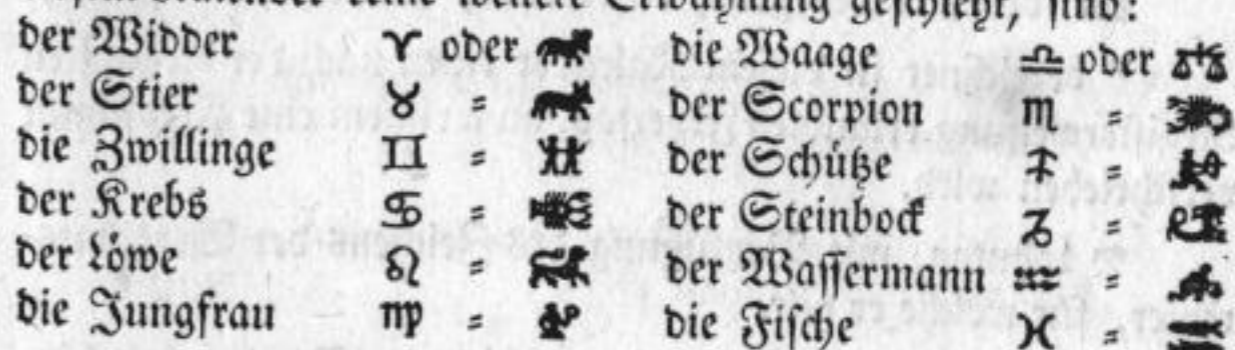 keine weitere Erwähnung geschieht, sind:
der Widder ♈ oder
der Stier ♉ =
die Zwillinge ♊ =
der Krebs ♋ =
der Löwe ♌ =
die Jungfrau ♍ =
die Waage ♎ oder
der Scorpion ♏ =
der Schütze ♐ =
der Steinbock ♑ =
der Wassermann ♒ =
die Fische ♓ =